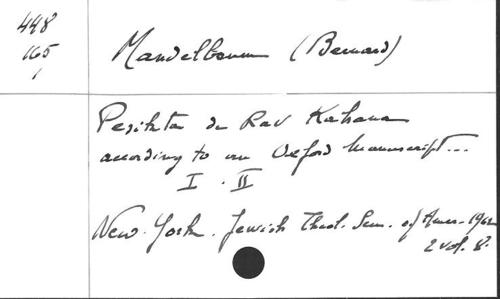 448
165
1
Mandelbaum (Bernard)
Pesikta de Rav Kahana
according to an Oxford Manuscript...
I . II
New-York. Jewish Theol. Sem. of Amer. 1962
2 vol. 8.